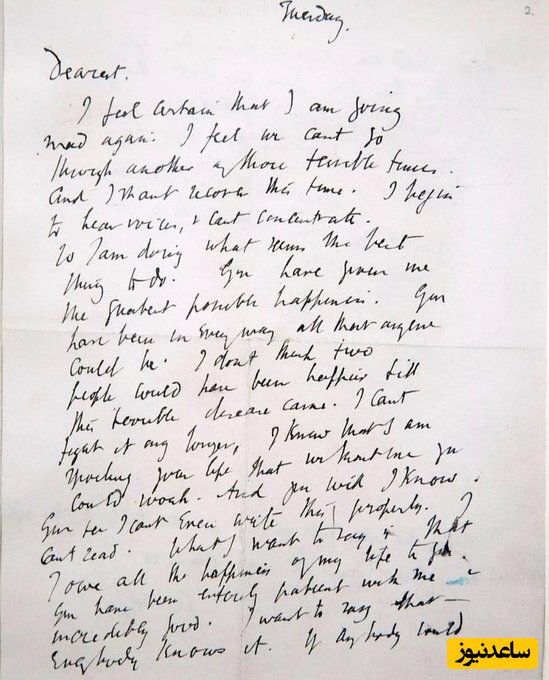 2
Tuesday.
Dearest,
I feel certain that I am going
mad again. I feel we cant go
through another of those terrible times.
And I shant recover this time. I begin
to hear voices, & cant concentrate.
So I am doing what seems the best
thing to do. You have given me
the greatest possible happiness. You
have been in every way all that anyone
could be. I dont think two
people could have been happier till
this terrible disease came. I cant
fight it any longer, I know that I am
spoiling your life, that without me you
could work. And you will I know.
You see I cant even write this properly. I
cant read. What I want to say is that
I owe all the happiness of my life to you.
You have been entirely patient with me &
incredibly good. I want to say that –
everybody knows it. If anybody could
ساعدنیوز